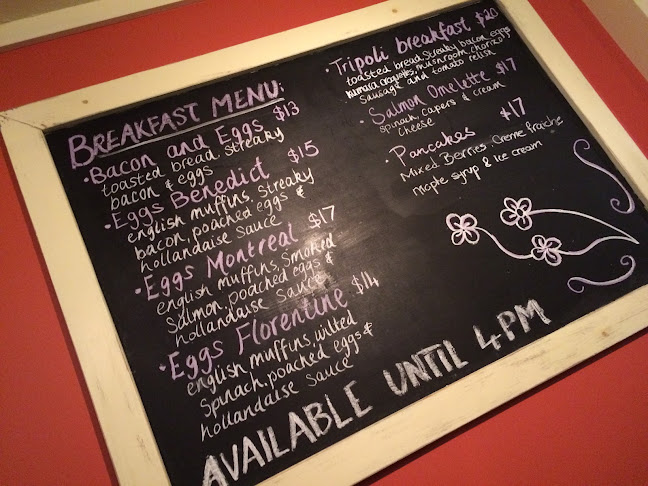 BREAKFAST MENU:
• Bacon and Eggs $13
toasted bread, streaky
bacon & eggs
• Eggs Benedict $15
english muffins, streaky
bacon, poached eggs &
hollandaise sauce
• Eggs Montreal $17
english muffins, smoked
Salmon, poached eggs &
hollandaise sauce
• Eggs Florentine $14
english muffins, wilted
Spinach, poached eggs &
hollandaise sauce
• Tripoli breakfast $20
toasted bread, streaky bacon, eggs
kumara croquettes, mushroom, chorizo
sausage and tomato relish
• Salmon Omelette $17
spinach, capers & cream
cheese
• Pancakes $17
Mixed Berries Creme fraiche
maple syrup & Ice cream
AVAILABLE UNTIL 4PM